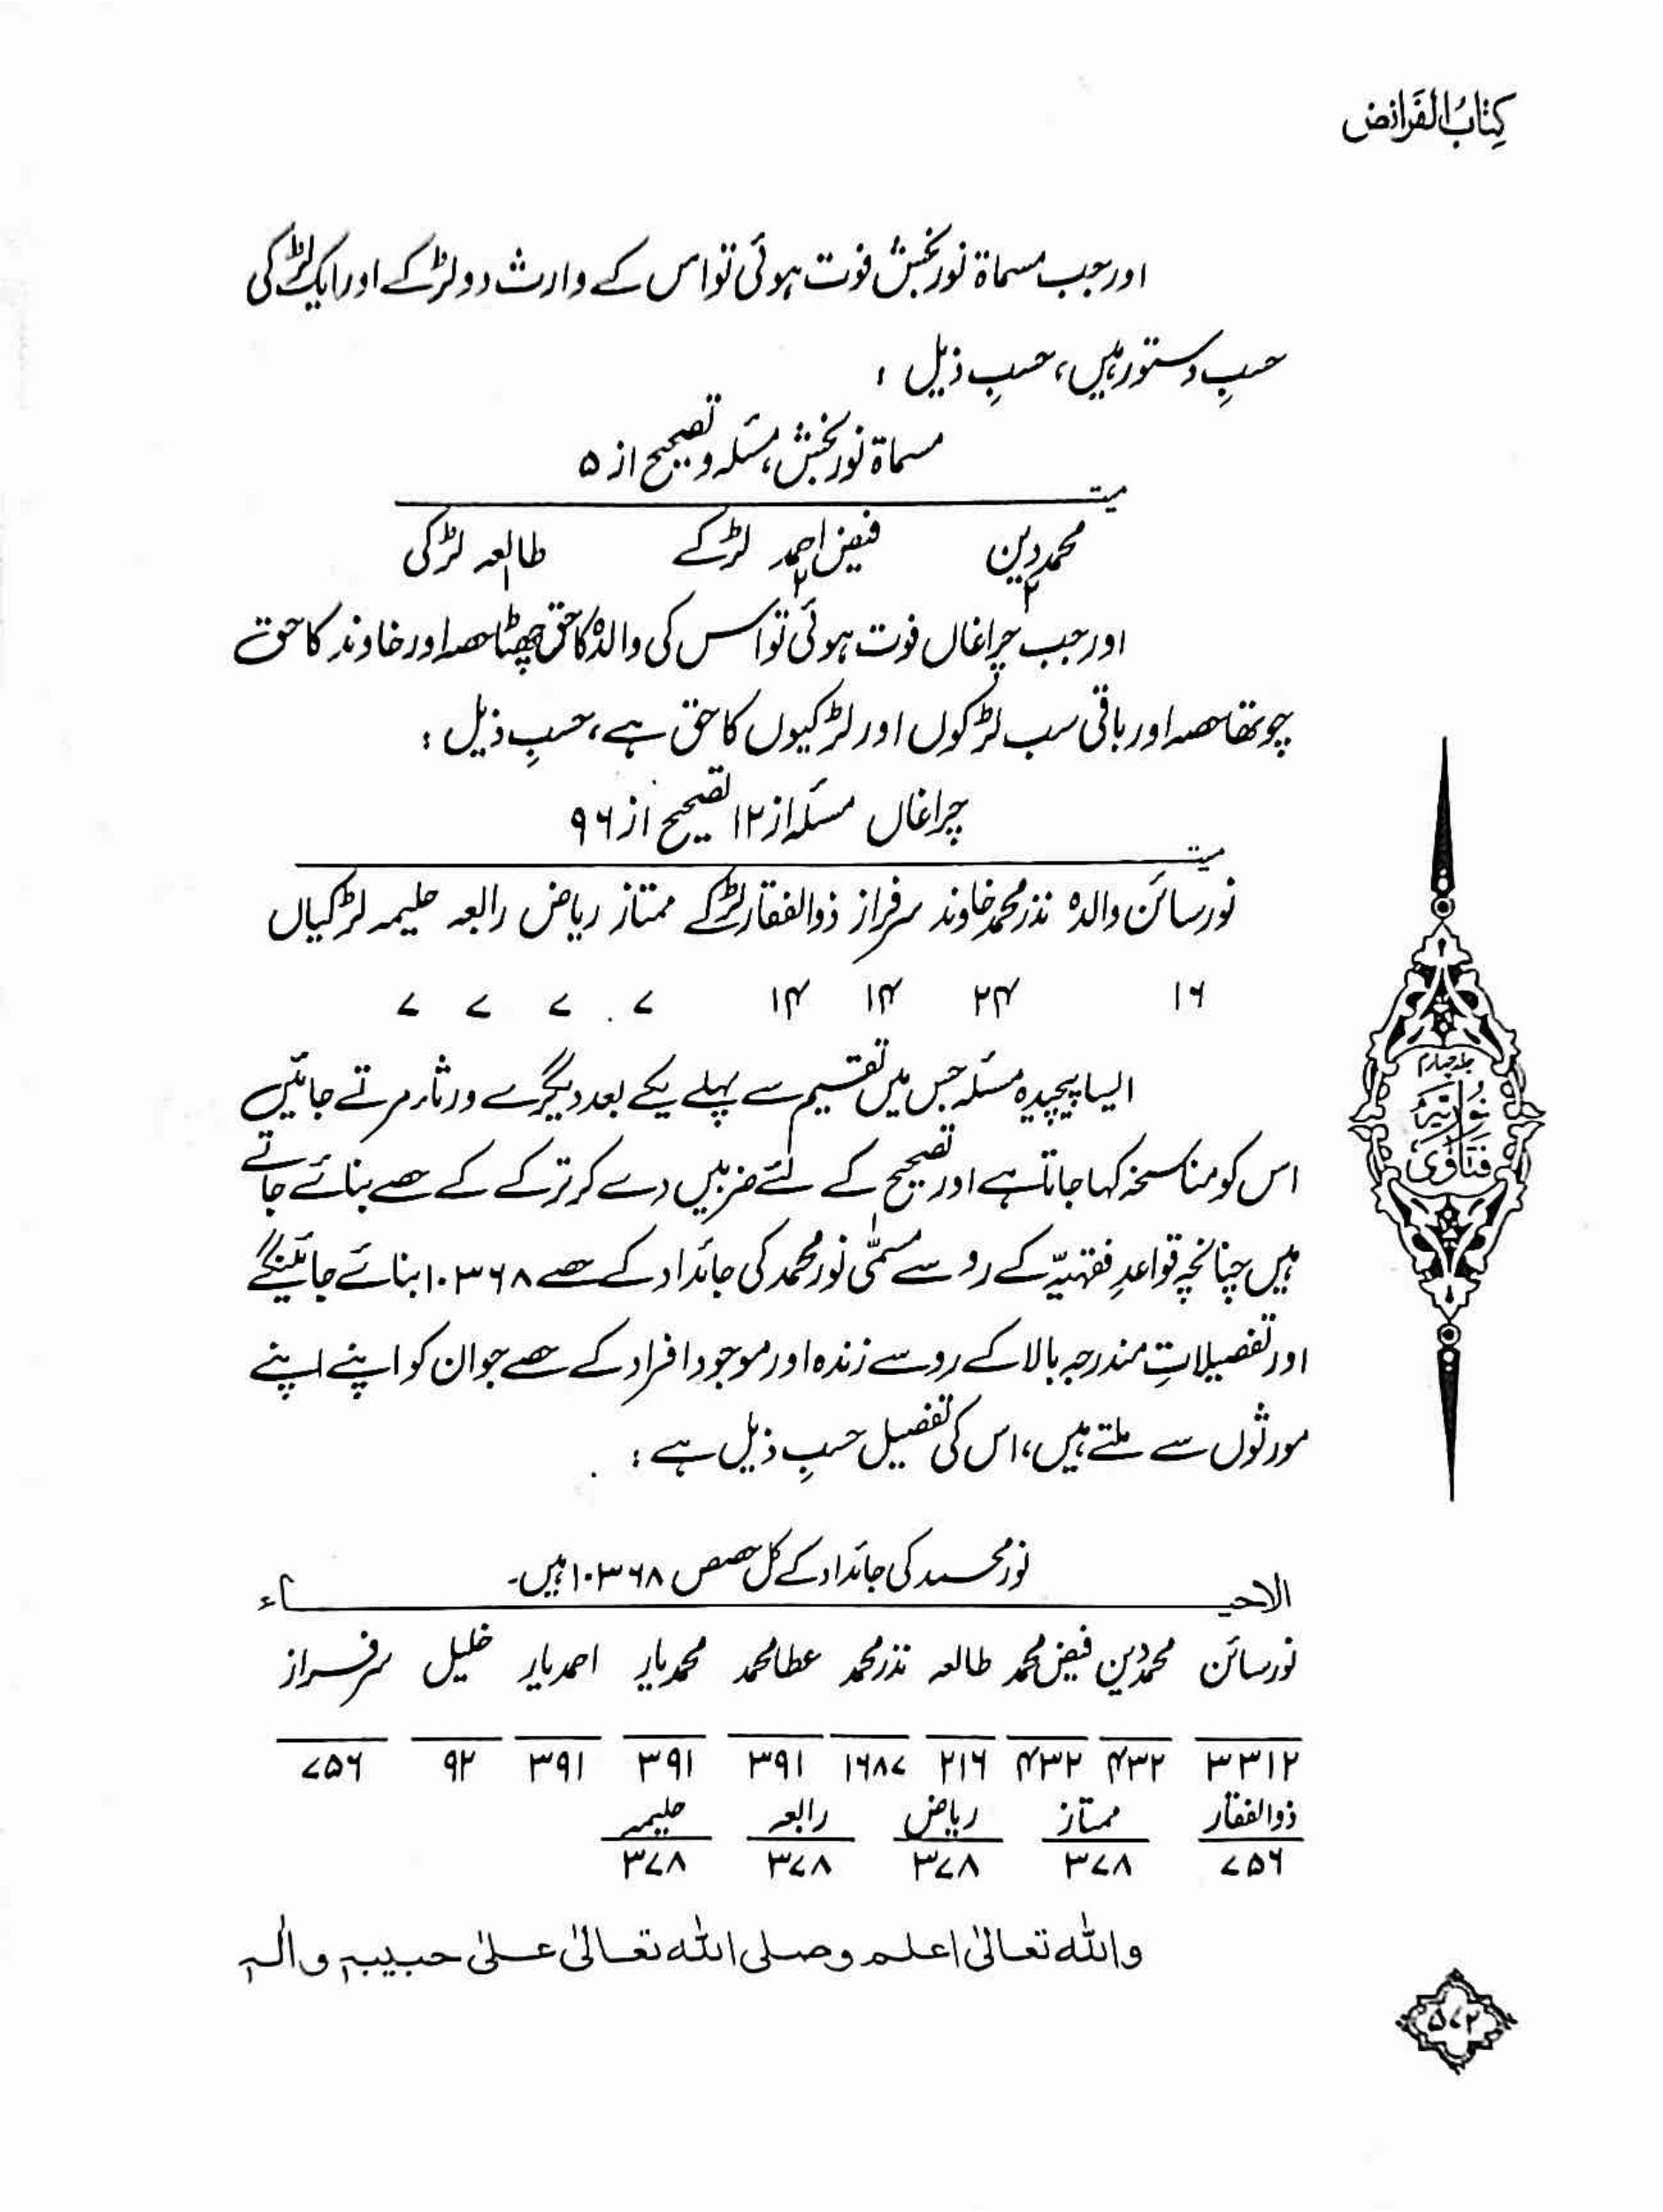 کِتابُ الفَرائض
اور جب مسماۃ نور بخش فوت ہوئی تو اس کے وارث دو لڑکے اور ایک لڑکی
حسبِ دستور ہیں، حسبِ ذیل :
مسماۃ نور بخش، مسئلہ و تصحیح از ۵
میت
محمد دین فیض احمد لڑکے طالعہ لڑکی
۲ ۲ ۱
اور جب چراغاں فوت ہوئی تو اس کی والدہ کا حق چھٹا حصہ اور خاوند کا حق
چوتھا حصہ اور باقی سب لڑکوں اور لڑکیوں کا حق ہے، حسبِ ذیل :
چراغاں مسئلہ از ۱۲ تصحیح از ۹۶
میت
نور سائن والدہ نذر محمد خاوند سرفراز ذوالفقار لڑکے ممتاز ریاض رابعہ حلیمہ لڑکیاں
۱۶ ۲۴ ۱۴ ۱۴ ۷ ۷ ۷ ۷
ایسا پیچیدہ مسئلہ جس میں تقسیم سے پہلے یکے بعد دیگرے ورثاء مرتے جائیں
اس کو مناسخہ کہا جاتا ہے اور تصحیح کے لئے ضربیں دے کر ترکے کے حصے بنائے جاتے
ہیں چنانچہ قواعدِ فقہیّہ کے رو سے مسمّٰی نور محمد کی جائداد کے حصے ۱۰۳۶۸ بنائے جائینگے
اور تفصیلاتِ مندرجہ بالا کے رو سے زندہ اور موجود افراد کے حصے جو ان کو اپنے اپنے
مورثوں سے ملتے ہیں، اس کی تفصیل حسبِ ذیل ہے :
نور محمد کی جائداد کے کل حصص ۱۰۳۶۸ ہیں۔
الاحیاء
نور سائن محمد دین فیض محمد طالعہ نذر محمد عطا محمد محمد یار احمد یار خلیل سرفراز
۳۳۱۲ ۴۳۲ ۴۳۲ ۲۱۶ ۱۶۸۷ ۳۹۱ ۳۹۱ ۳۹۱ ۹۲ ۷۵۶
ذوالفقار ممتاز ریاض رابعہ حلیمہ
۷۵۶ ۳۷۸ ۳۷۸ ۳۷۸ ۳۷۸
واللہ تعالیٰ اعلم وصلی اللہ تعالیٰ علیٰ حبیبہٖ واٰلہٖ
جلد چہارم
نُورِیَّہ
فَتَاوٰی
۵۷۲